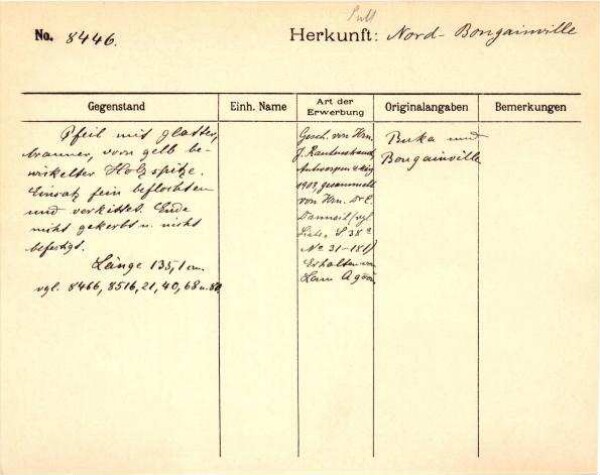 No. 8446.
Herkunft: Nord-Bougainville
Gegenstand
Einh. Name
Art der Erwerbung
Originalangaben
Bemerkungen
Pfeil mit glatter,
brauner, vorn gelb be-
wickelter Holzspitze.
Einsatz fein beflochten
und verkittet. Ende
nicht gekerbt u. nicht
befestigt.
Länge 135,1 cm.
vgl. 8466, 8516, 21, 40, 68 u.
Gesch. von Hrn.
J.
Antwerpen
gesammelt
von Hrn. Dr.
Liste,
No 31-
Erhalten
Buka und
Bougainville